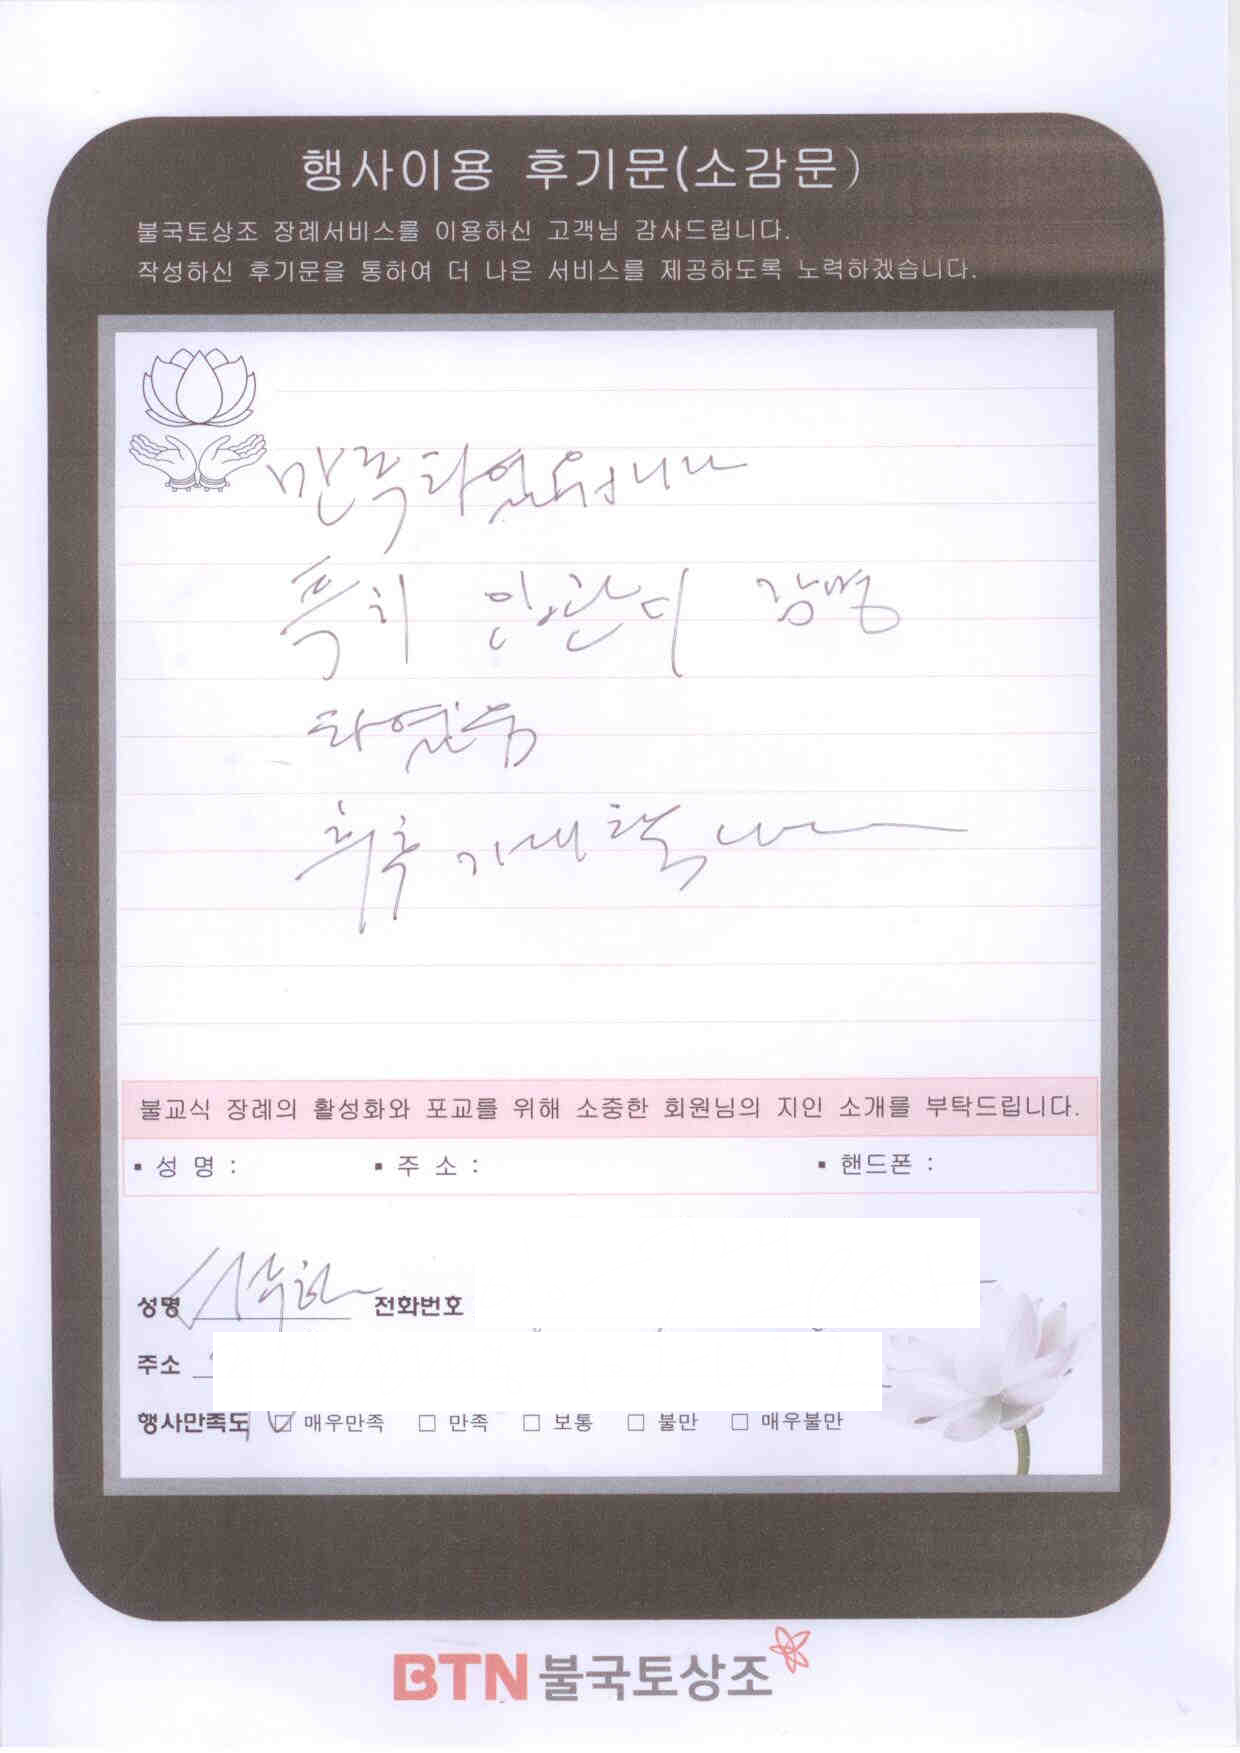 행사이용 후기문(소감문)
불국토상조 장례서비스를 이용하신 고객님 감사드립니다.
작성하신 후기문을 통하여 더 나은 서비스를 제공하도록 노력하겠습니다.
만족하였습니다
특히 입관이 감명
하였음
불교식 장례의 활성화와 포교를 위해 소중한 회원님의 지인 소개를 부탁드립니다.
▪ 성 명 : ▪ 주 소 : ▪ 핸드폰 :
성명 전화번호
주소
행사만족도 □ 매우만족 □ 만족 □ 보통 □ 불만 □ 매우불만
BTN 불국토상조